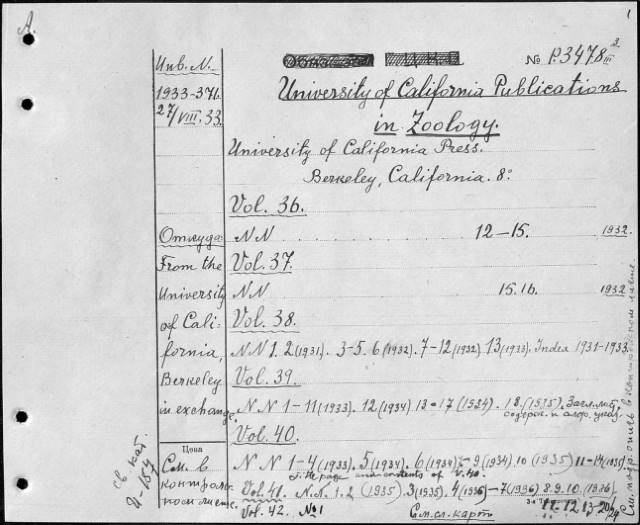 А.
1
Инв. N.
№ P.3478 III 2
1933-376.
27/VIII.33.
University of California Publications
in Zoology.
University of California Press.
Berkeley, California. 8°
Vol. 36.
Откуда
NN 12-15. 1932.
From the
Vol. 37.
University
NN 15.16. 1932
of Cali-
Vol. 38.
fornia,
NN 1. 2 (1931). 3-5. 6 (1932). 7-12 (1932) 13 (1933). Index 1931-1933.
Berkeley
Vol. 39.
in exchange.
NN 1-11 (1933). 12 (1934) 13-17 (1934). 18. (1935). Загл. лист,
содерж. и алф. указ.
Vol. 40.
Цена
См. в
контроль-
ном листке.
NN 1-4 (1933). 5 (1934). 6 (1934) 7-9 (1934). 10 (1935) 11-14 (1935).
T. He page and contents of V. 40
Vol. 41. N.N. 1. 2 (1935). 3 (1935). 4 (1936) - 7 (1936) 8. 9. 10. (1936)
11. 12. 13-20
Vol. 42. №1
См. сл. карт.
св. кат.